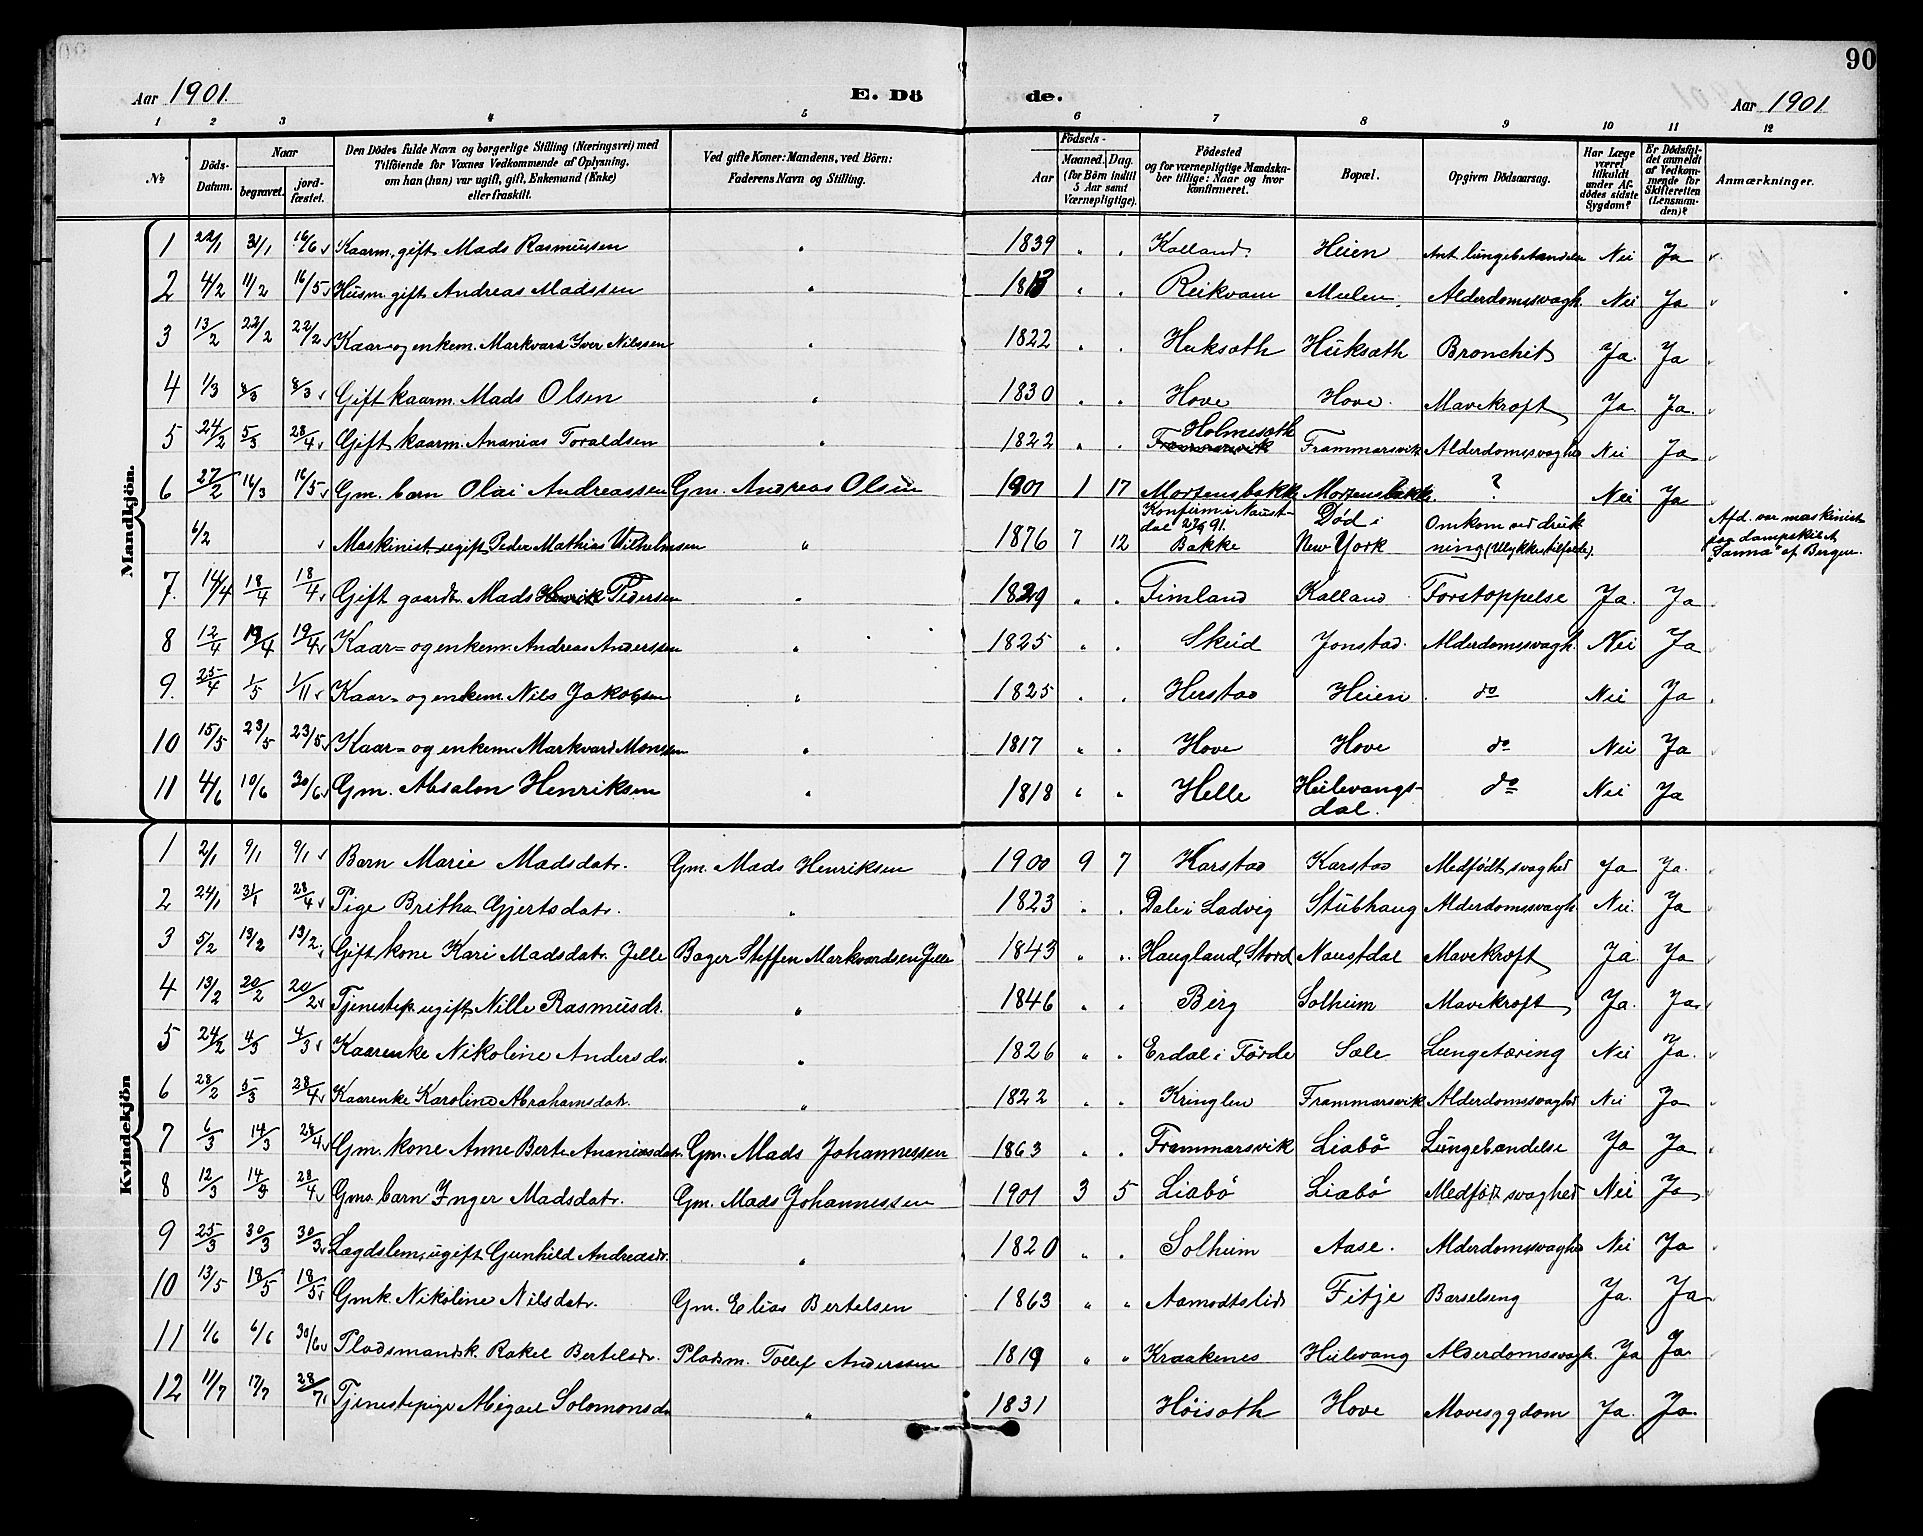 90
Aar 1901. E. Döde. Aar 1901
1 2 3 4 5 6 7 8 9 10 11 12
№ Döds-Datum. Naar begravet. jordfæstet. Den Dödes fulde Navn og borgerlige Stilling (Næringsvei) med Tilföiende for Voxnes Vedkommende af Oplysning, om han (hun) var ugift, gift, Enkemand (Enke) eller fraskilt. Ved gifte Koner: Mandens, ved Börn: Faderens Navn og Stilling. Födsels- Aar Maaned. Dag. (for Börn indtil 5 Aar samt Værnepligtige). Födested og for værnepligtige Mandskaber tillige: Naar og hvor konfirmeret. Bopæl. Opgiven Dödsaarsag. Har Læge været tilkaldt under Afdödes sidste Sygdom? Er Dödsfaldet anmeldt af Vedkommende for Skifteretten (Lensmanden)? Anmærkninger.
Mandkjön.
1 22/1 31/1 16/6 Kaarm. gift Mads Rasmussen " 1839 " " Kalland. Heien Ant. lungebetændelse Nei Ja
2 4/2 11/2 16/5 Husm. gift Andreas Madssen " 1813 " " Reikvam Mulen. Alderdomssvagh. Nei Ja
3 13/2 22/2 22/2 Kaar- og enkem. Markvard Iver Nilssen " 1822 " " Huksoth Huksoth Bronchit Ja Ja
4 1/3 8/3 8/3 Gift kaarm. Mads Olsen " 1830 " " Hove Hove. Mavekræft Ja Ja.
5 24/2 5/3 28/4 Gift kaarm. Ananias Toraldsen " 1822 " " Frammarsvik Holmesoth Frammarsvik Alderdomssvaghed Nei Ja
6 27/2 16/3 16/5 Gm. barn Olai Andreassen Gm. Andreas Olsen 1901 1 17 Mortensbakke Mortensbakke. ? Nei Ja
6/2 Maskinist ugift Peder Mathias Vilhelmsen " 1876 7 12 Konfirm. i Naustdal 27/9 91. Bakke Död i New York Omkom ved drukning (Ulykkestilfælde). Afd. var maskinist paa dampskibet "Sanna" af Bergen.
7. 14/4 18/4 18/4 Gift gaardb. Mads Henrik Pedersen " 1829 " " Timland Kalland Forstoppelse Ja. Ja
8 12/4 19/4 19/4 Kaar= og enkem. Andreas Anderssen " 1825 " " Skeid Jonstad. Alderdomssvagh. Nei Ja
9. 25/4 1/5 1/11 Kaar= og enkem. Nils Jakobsen " 1825 " " Herstad Heien do Nei Ja
10 15/5 23/5 23/5 Kaar= og enkem. Markvard Monssen " 1817 " " Hove Hove do Nei Ja
11 4/6 10/6 30/6 Gm. Absalon Henriksen " 1818 " " Helle Heilevangsdal. do Nei Ja
Kvindekjön
1 2/1 9/1 9/1 Barn Marie Madsdatr. Gm. Mads Henriksen 1900 9 7 Karstad Karstad Medfødt svaghed Ja Ja.
2 24/1 31/1 28/4 Pige Britha Gjertsdatr. " 1823 " " Dale i Ladvig Stubhaug Alderdomssvagh. Nei. Ja
3 5/2 13/2 13/2 Gift kone Kari Madsdatr. Jelle Bager Steffen Markvardsen Jelle 1843 " " Haugland, Stord Naustdal Mavekræft Ja Ja
4 13/2 20/2 20/2 Tjenestep. ugift Nille Rasmusdr. " 1846 " " Berg Solheim Mavekræft Ja. Ja.
5 24/2 4/3 4/3 Kaarenke Nikoline Andersdr. " 1826 " " Erdal i Førde Sæle Lungetæring Nei Ja.
6 28/2 5/3 28/4 Kaarenke Karoline Abrahamsdatr. " 1822 " " Kringlen Frammarsvik Alderdomssvaghed Nei Ja
7 6/3 14/3 28/4 Gm. kone Anne Berte Ananiasdatr. Gm. Mads Johannessen 1863 " " Frammarsvik Liabö Lungebændelse Ja Ja
8 12/3 14/3 28/4 Gms. barn Inger Madsdatr. Gm. Mads Johannessen 1901 3 5 Liabö Liabö Medfødt svaghed Nei Ja
9 25/3 30/3 30/3 Lægdslem, ugift Gunhild Andreasdr. " 1820 " " Solheim Aase. Alderdomssvaghed Nei Ja
10 13/5 18/5 18/5 Gmk. Nikoline Nilsdatr. Gm. Elias Bertelsen 1863 " " Aamodtslid Fitje Barselseng Ja. Ja
11 1/6 6/6 30/6 Pladsmandsk. Rakel Bertelsdr. Pladsm. Tollef Anderssen 1819 " " Kraakenes Heilevang Alderdomssvagh. Ja Ja.
12 11/7 17/7 28/7 Tjenestepige Abigael Solomonsdr " 1831 Höisoth Hove Mavesygdom Ja. Ja.